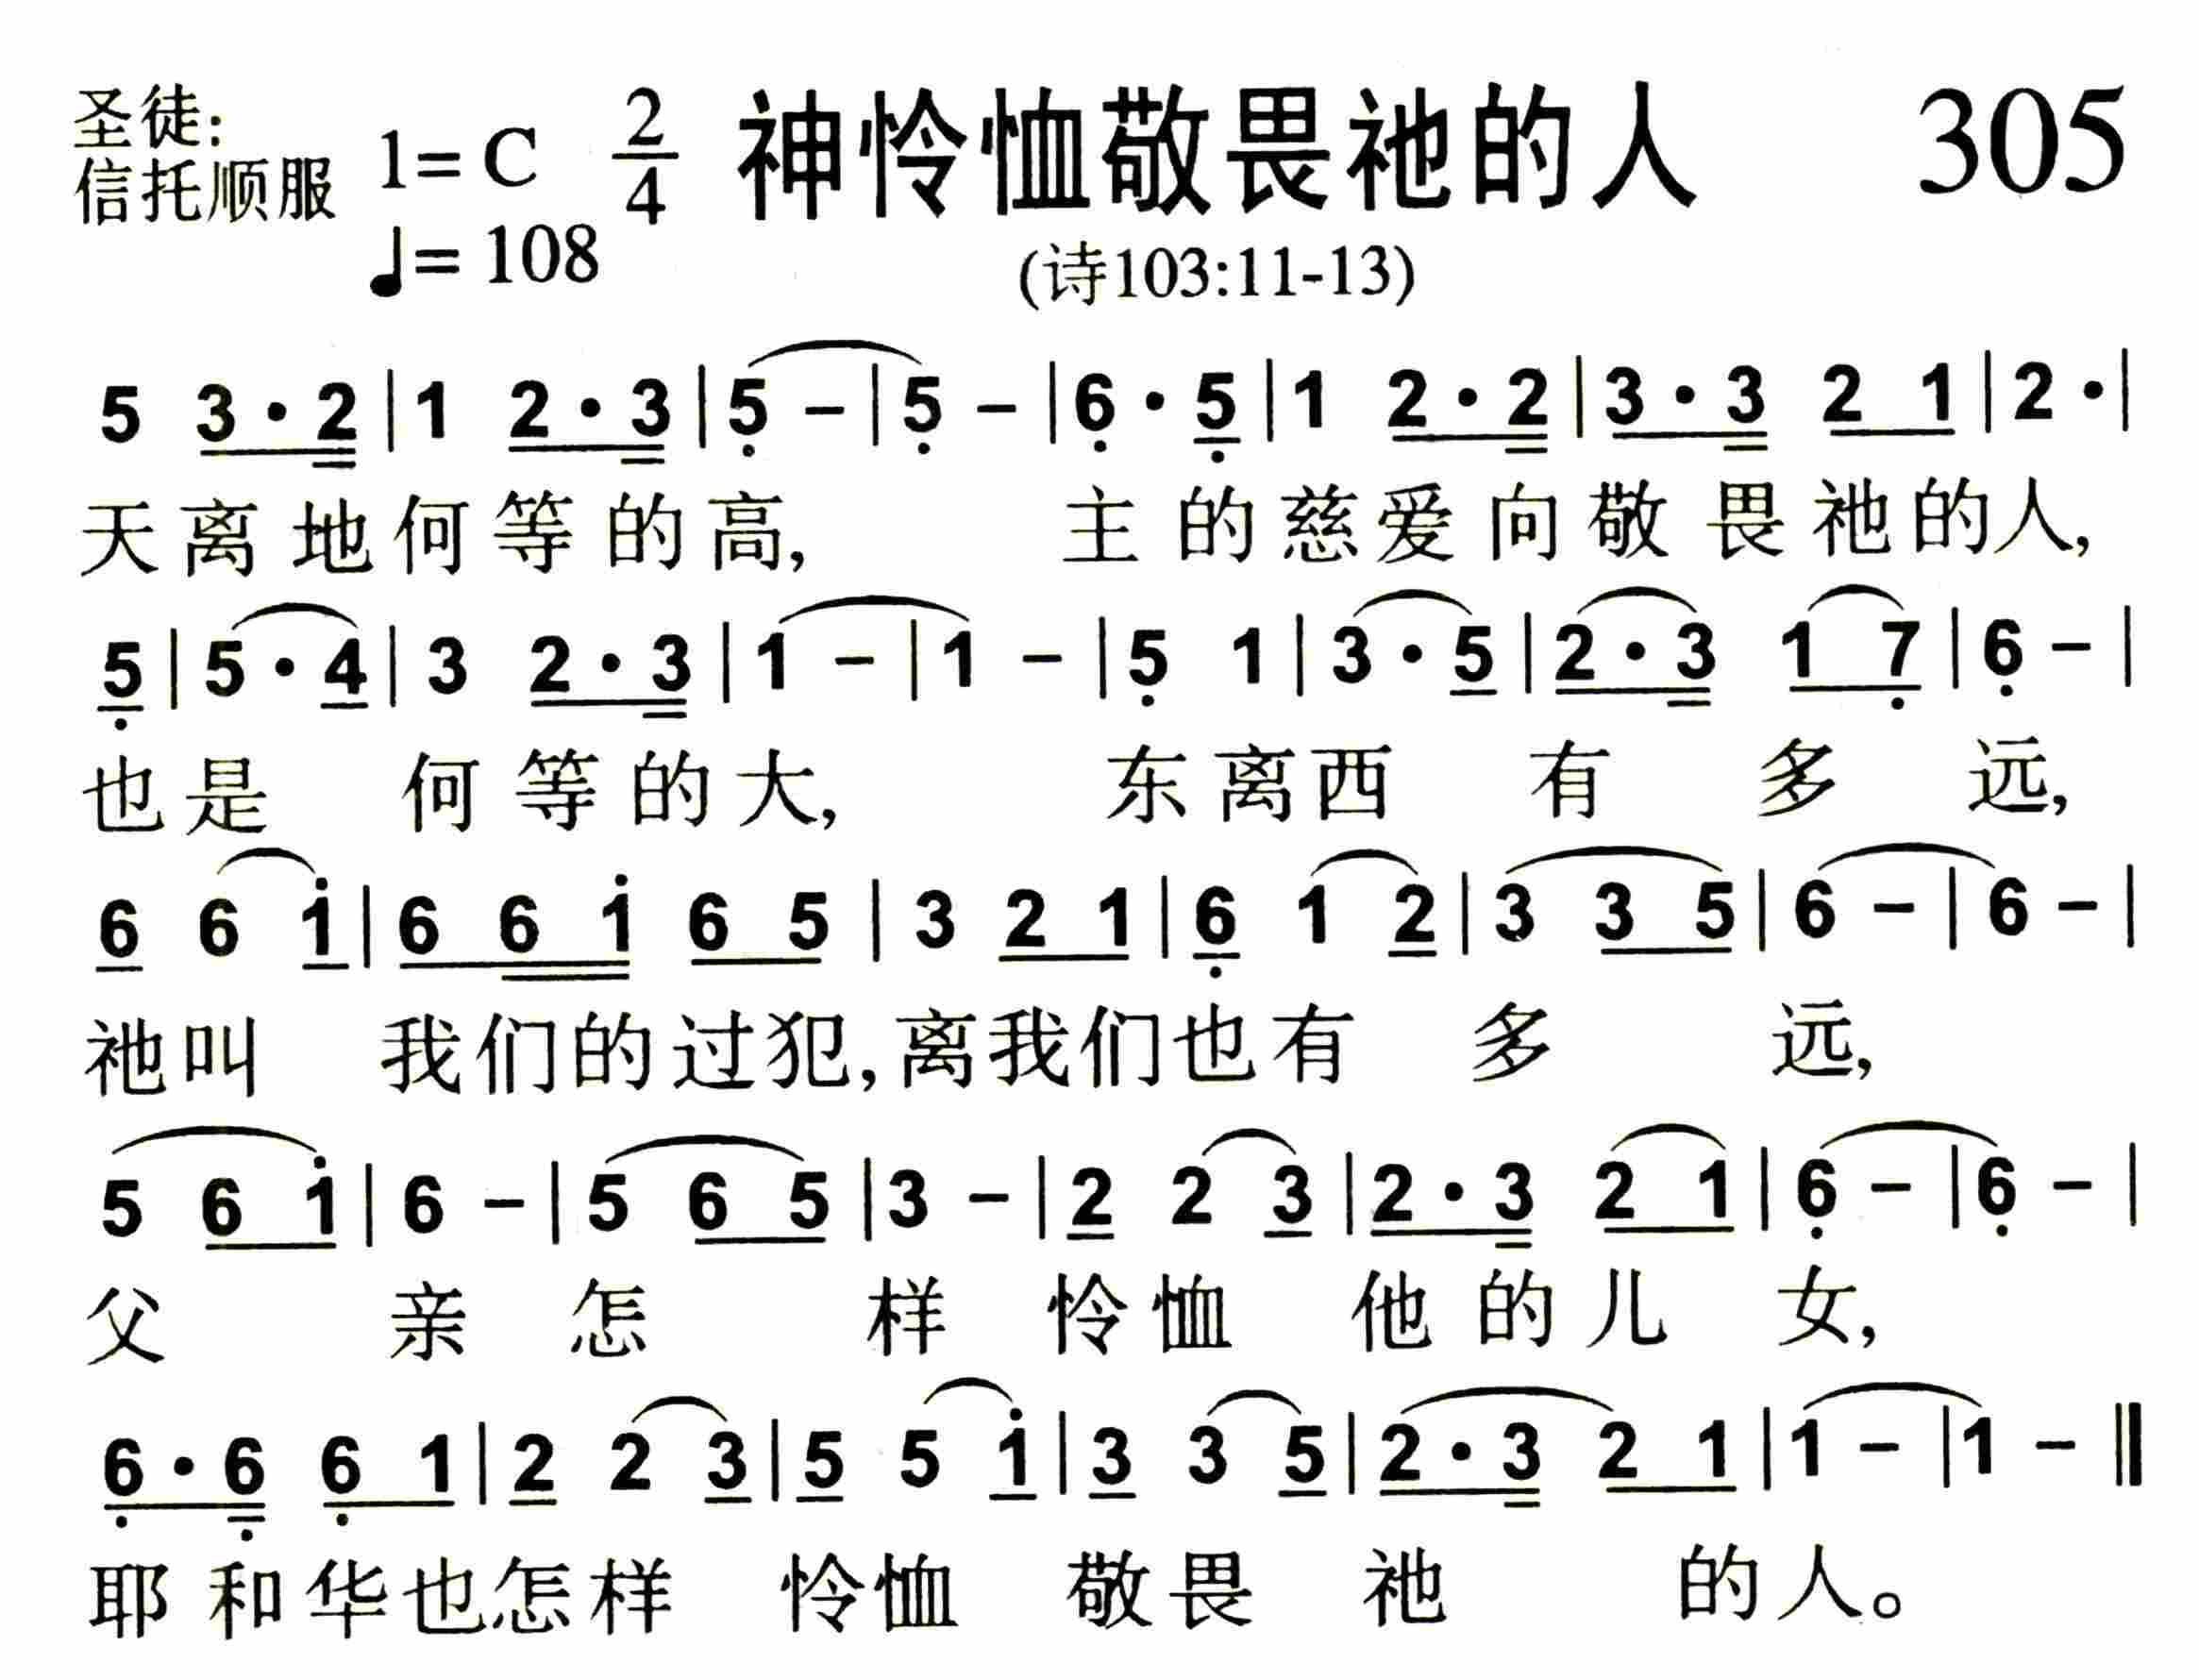 圣徒:
信托顺服
1=C 2/4 神怜恤敬畏祂的人 305
♩=108 (诗103:11-13)
5 3·2|1 2·3|5 –|5 –|6·5|1 2·2|3·3 2 1|2·|
天离地何等的高, 主的慈爱向敬畏祂的人,
5|5·4|3 2·3|1 –|1 –|5 1|3·5|2·3 1 7|6 –|
也是何等的大, 东离西有多远,
6 6 1|6 6 1 6 5|3 2 1|6 1 2|3 3 5|6 –|6 –|
祂叫我们的过犯,离我们也有多远,
5 6 1|6 –|5 6 5|3 –|2 2 3|2·3 2 1|6 –|6 –|
父亲怎样怜恤他的儿女,
6·6 6 1|2 2 3|5 5 1|3 3 5|2·3 2 1|1 –|1 –‖
耶和华也怎样怜恤敬畏祂的人。